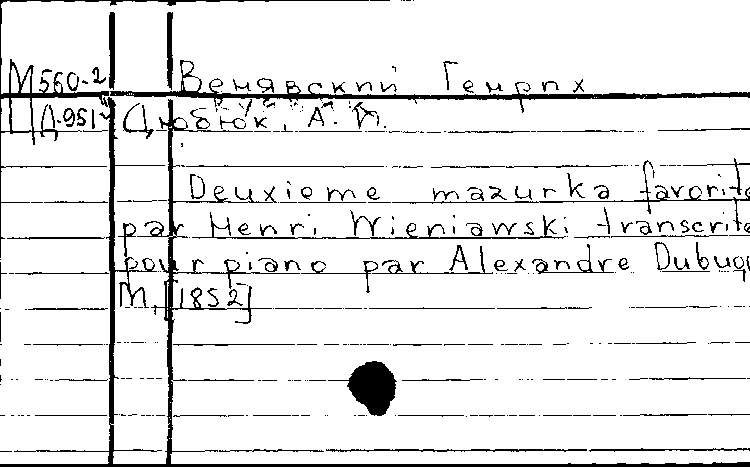 М560-2 Венявский, Генрих
Д-951 Дюбюк, А. И.
Deuxieme mazurka favorite
par Henri Wieniawski transcrite
pour piano par Alexandre Dubuqu
М, [1852]